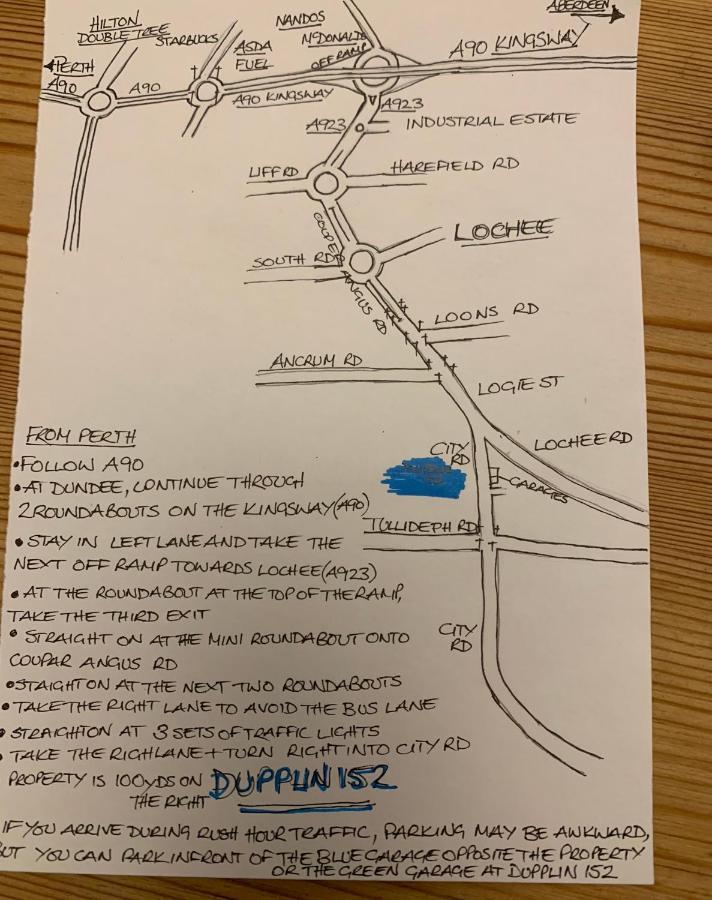 HILTON
DOUBLE TREE
STARBUCKS
ASDA
FUEL
NANDOS
McDONALDS
OFF RAMP
ABERDEEN
A90 KINGSWAY
PERTH
A90
A90
A90 KINGSWAY
A923
A923
INDUSTRIAL ESTATE
LIFF RD
HAREFIELD RD
COUPER ANGUS RD
SOUTH RD
LOCHEE
LOONS RD
ANCRUM RD
LOGIE ST
CITY
RD
LOCHEE RD
GARAGES
TULLIDEPH RD
CITY
RD
FROM PERTH
•FOLLOW A90
•AT DUNDEE, CONTINUE THROUGH
2 ROUNDABOUTS ON THE KINGSWAY (A90)
•STAY IN LEFT LANE AND TAKE THE
NEXT OFF RAMP TOWARDS LOCHEE (A923)
•AT THE ROUNDABOUT AT THE TOP OF THE RAMP,
TAKE THE THIRD EXIT
•STRAIGHT ON AT THE MINI ROUNDABOUT ONTO
COUPAR ANGUS RD
•STAIGHT ON AT THE NEXT TWO ROUNDABOUTS
•TAKE THE RIGHT LANE TO AVOID THE BUS LANE
•STRAIGHT ON AT 3 SETS OF TRAFFIC LIGHTS
•TAKE THE RIGH LANE + TURN RIGHT INTO CITY RD
PROPERTY IS 100YDS ON
THE RIGHT
DUPPLIN 152
IF YOU ARRIVE DURING RUSH HOUR TRAFFIC, PARKING MAY BE AWKWARD,
BUT YOU CAN PARK INFRONT OF THE BLUE GARAGE OPPOSITE THE PROPERTY
OR THE GREEN GARAGE AT DUPPLIN 152